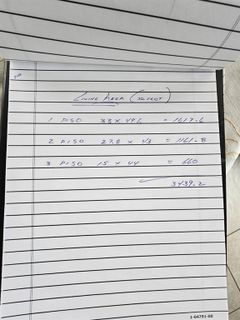 LIVING AREA (SQ FEET)
1 PISO 33 x 49.6 = 1617.6
2 PISO 27.8 x 43 = 1161.8
3 PISO 15 x 44 = 660
3439.2